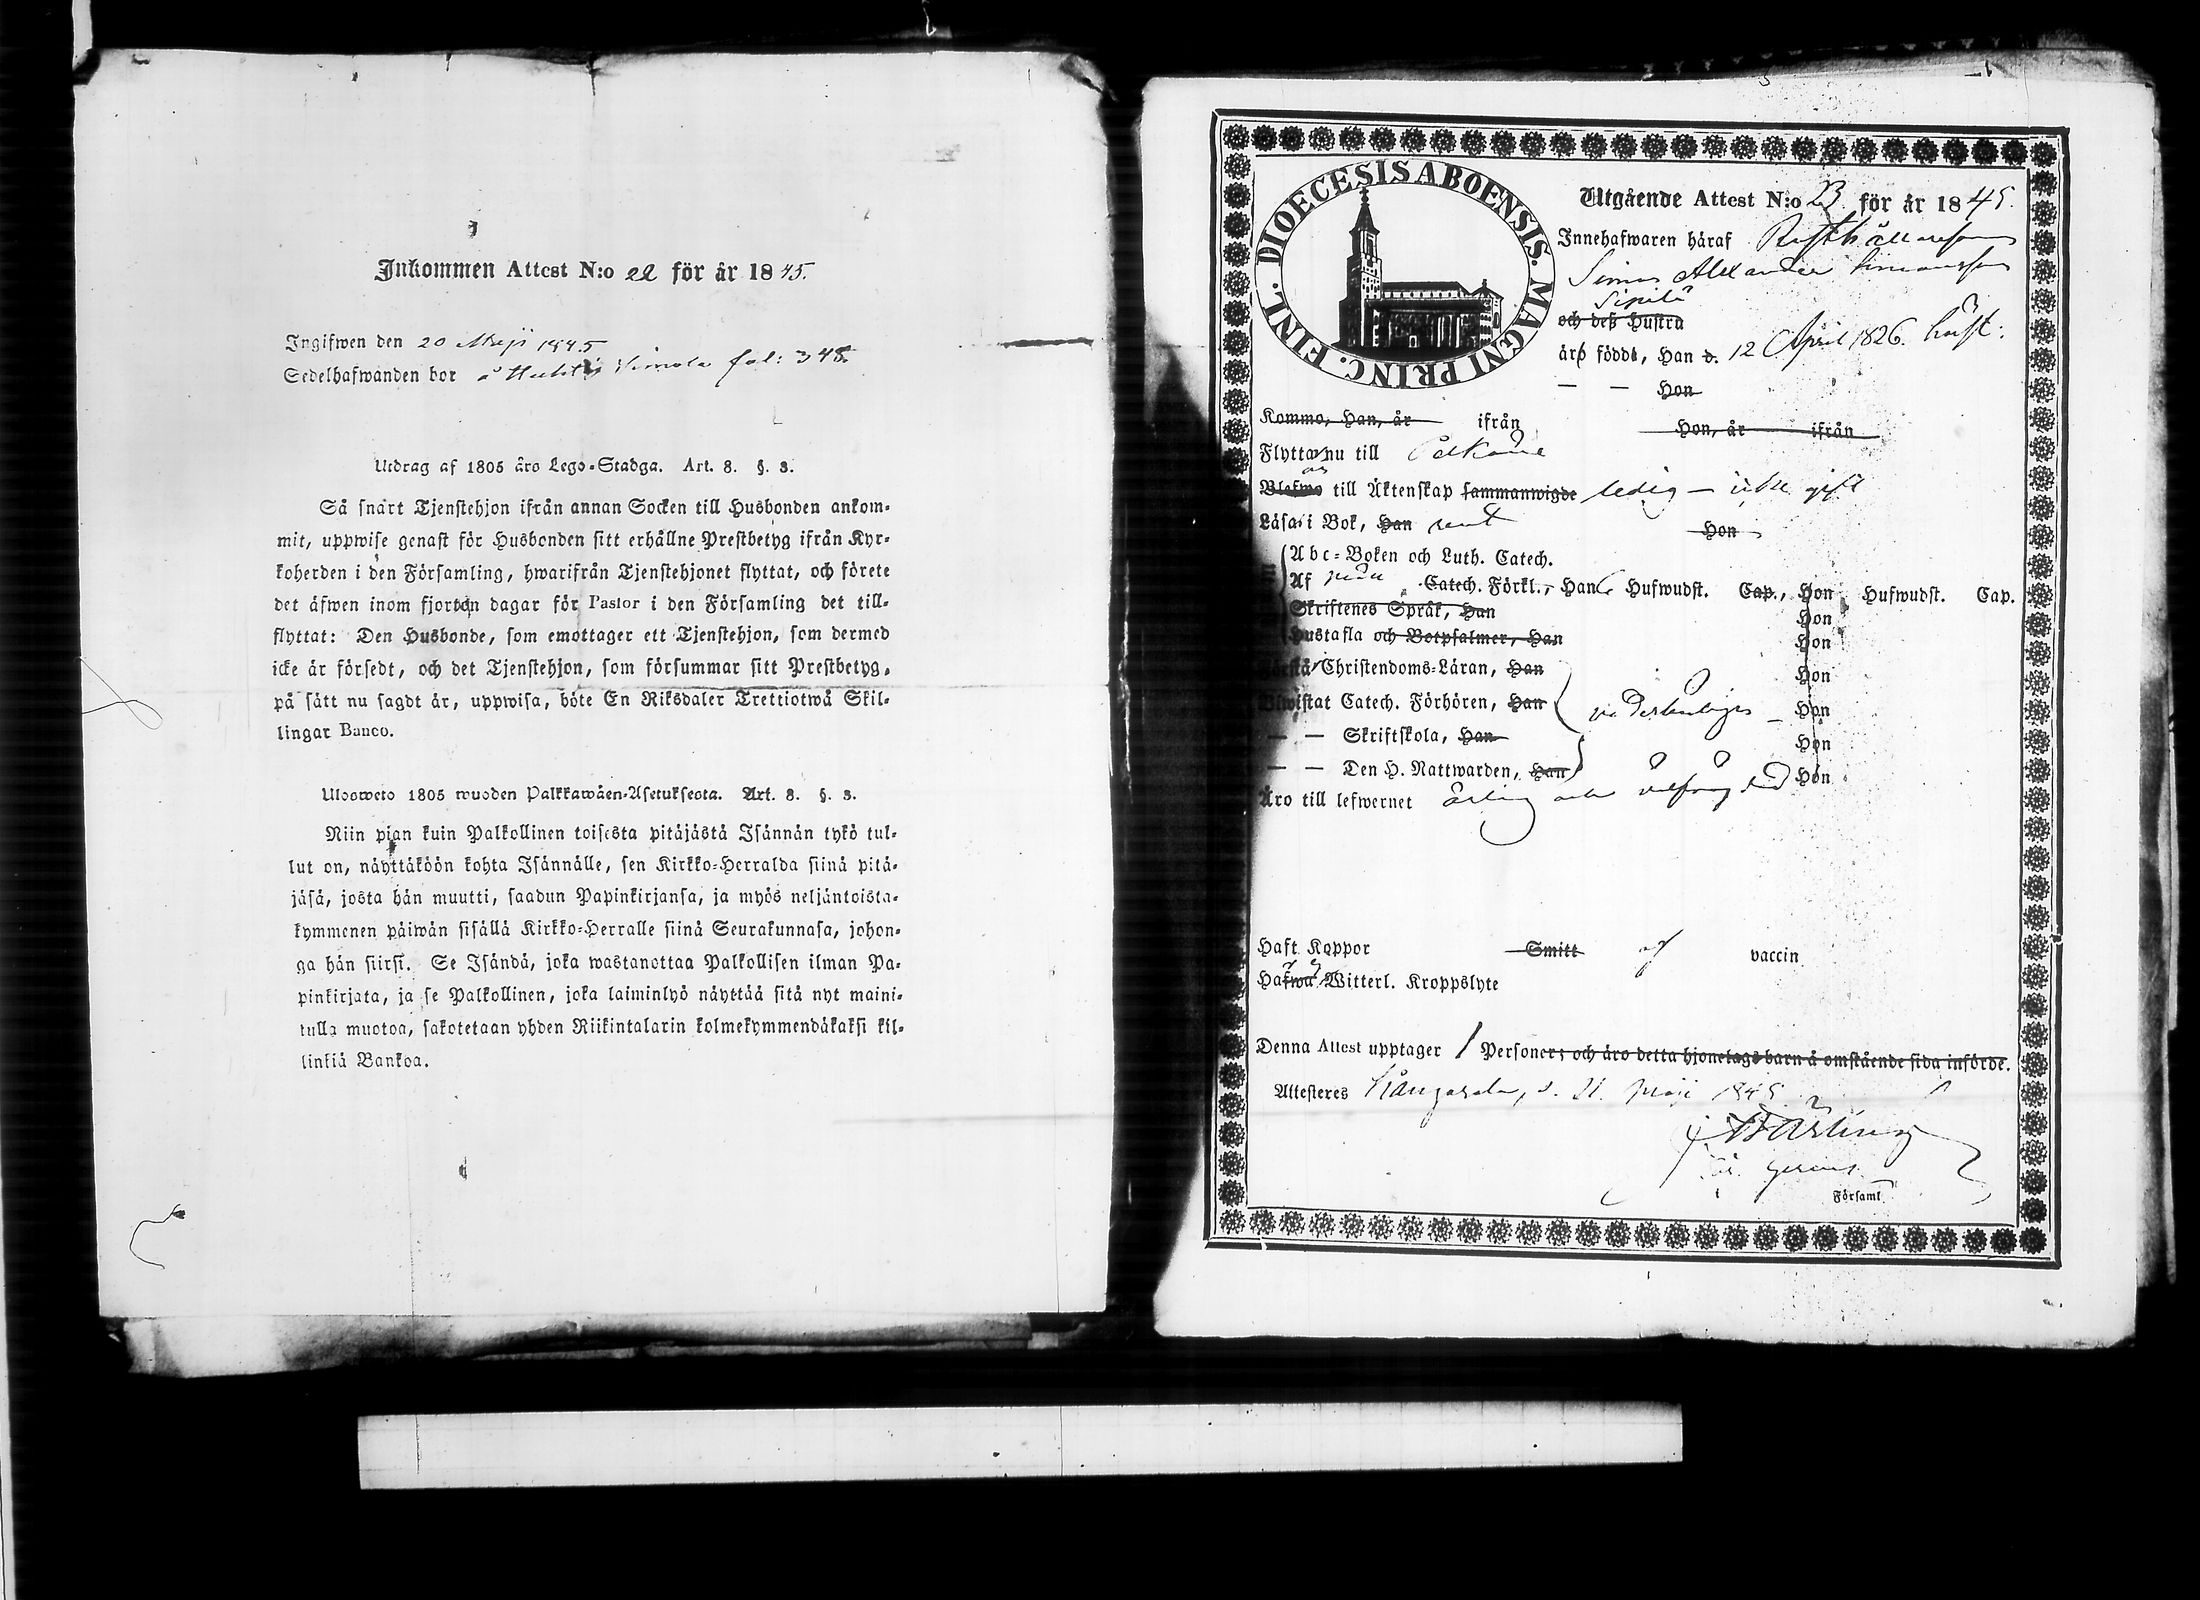 Inkommen Attest N:o 22 för år 1845.
Ingifwen den 20 Maji 1845
Sedelhafwanden bor å fol: 348.
Utdrag af 1805 års Lego-Stadga. Art. 8. §. 3.
Så snart Tjenstehjon ifrån annan Socken till Husbonden ankom-
mit, uppwise genast för Husbonden sitt erhållne Prestbetyg ifrån Kyr-
koherden i den Församling, hwarifrån Tjenstehjonet flyttat, och förete
det äfwen inom fjorton dagar för Pastor i den Församling det till-
flyttat: Den Husbonde, som emottager ett Tjenstehjon, som dermed
icke är försedt, och det Tjenstehjon, som försummar sitt Prestbetyg,
på sätt nu sagdt är, uppwisa, böte En Riksdaler Trettiotwå Skil-
lingar Banco.
Ulosweto 1805 wuoden Palkkawäen-Asetuksesta. Art. 8. §. 3.
Niin pian kuin Palkollinen toisesta pitäjästä Isännän tykö tul-
lut on, näyttäköön kohta Isännälle, sen Kirkko-Herralda siinä pitä-
jäsä, josta hän muutti, saadun Papinkirjansa, ja myös neljäntoista-
kymmenen päiwän sisällä Kirkko-Herralle siinä Seurakunnasa, johon-
ga hän siirsi. Se Isändä, joka wastanottaa Palkollisen ilman Pa-
pinkirjata, ja se Palkollinen, joka laiminlyö näyttää sitä nyt maini-
tulla muotoa, sakotetaan yhden Riikintalarin kolmekymmendäkaksi kil-
linkiä Bankoa.
DIOECESIS ABOENSIS. MAGNI PRINC. FINL.
Utgående Attest N:o 23 för år 1845.
Innehafwaren häraf Rusthållaresonen
Simon Alexander Simonsson
Sipilä
och deß Hustru
äro födde, Han d. 12 April 1826.
— — Hon
Kommo, Han, år ifrån Hon, år ifrån
Flytta nu till Pälkäne
till Äktenskap sammanwigde ledig – icke gift
Läsa i Bok, Han rent Hon
Abc-Boken och Luth. Catech.
Af Catech. Förkl., Han Hufwudst. Cap., Hon Hufwudst. Cap.
Skriftenes Språk, Han Hon
Hustafla och Botpsalmer, Han Hon
Förstå Christendoms-Läran, Han Hon
Biwistat Catech. Förhören, Han Hon
— — Skriftskola, Han Hon
— — Den H. Nattwarden, Han Hon
Äro till lefwernet ärlig och
Haft Koppor Smitt af vaccin
Witterl. Kroppslyte
Denna Attest upptager 1 Personer; och äro detta hjonelags barn å omstående sida införde.
Attesteres Kångasala, d. Maji 1845.
Församl.